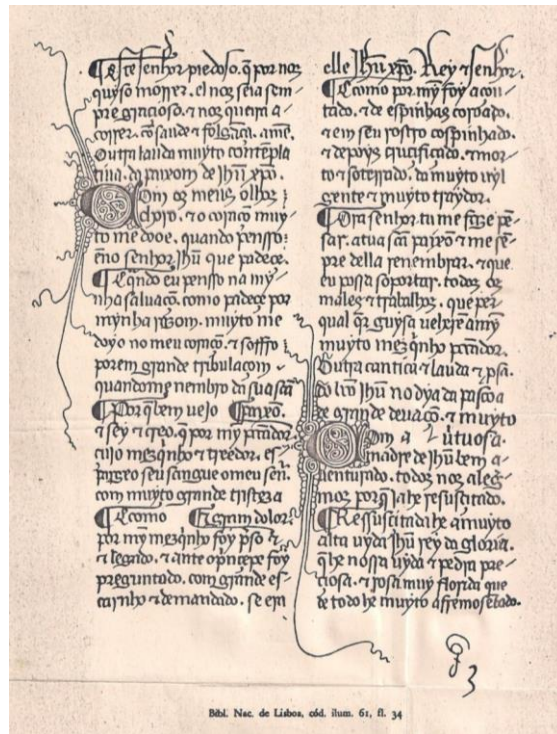 Este senhor piedoso. q̃ por nos
quyso morrer. el nos seia sem
pre gracioso. ⁊ nos queira a
correr. cõ saude ⁊ folgãça. amẽ.
Outra lauda muyto contempla
tiua. da paixom de Jhũ xp̃o.
Com os meus olhos
choro. ⁊ o coraçõ muy
to me dooe. quando pensso:
ẽno senhor Jhũ que padece.
Cãndo eu pensso na my
nha saluaçõ. como padeçe por
mynha rrezom. muyto me
doyo no meu coraçõ. ⁊ soffro
porem grande tribulaçom
quandome nembro da sua scã
Por q̃ bem vejo paixõ.
⁊ sey ⁊ creo. q̃ por my pecador.
cujo mezq̃nho ⁊ treedor. es
pargeo seu sangue o meu señ.
com muyto grande tristeza
E como E gram dolor:
por my mezq̃nho foy p̃so ⁊
⁊ legado. ⁊ ante o p̃ncepe foy
preguntado. com grande es
carnho ⁊ demandado. se era
elle Jhũ xp̃o. Rey ⁊ senhor.
E como por my foy açou
tado. ⁊ de espinhas coroado.
⁊ em seu rostro cospinhado.
⁊ depoys crucificado. ⁊ mor
to ⁊ soterrado. da muyto uyl
gente ⁊ muyto traydor.
Ora senhor tu me faze pẽ
sar. a tua scã paixõ ⁊ me sẽ
pre della renembrar. ⁊ que
eu possa soportar. todos os
males ⁊ trabalhos. que per
qual q̃r guysa veherẽ a my
muyto mezq̃nho pecador.
Outra cantica ⁊ lauda ⁊ psã.
do bõo Jhũ no dya da pascoa
de grande deuaçõ. ⁊ muyto
Com a uirtuosa.
madre de Jhũ bem a
uenturado. todos nos aleg̃
mos por q̃ ja he resuscitado.
Ressuscitada he a muyto
alta uyda Jhũ rey da gloria.
q̃ he nossa uyda ⁊ pedra pre
ciosa. ⁊ rosa muy florida que
de todo he muyto afremosẽtado.
Bibl. Nac. de Lisboa, cód. ilum. 61, fl. 34